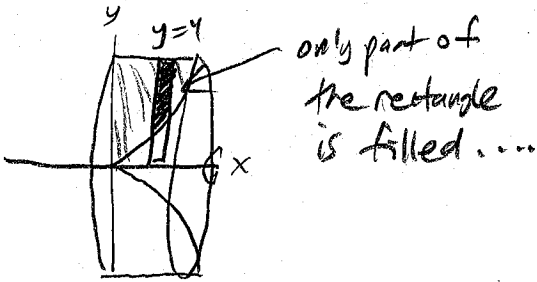 y
y=4
only part of
the rectangle
is filled....
x